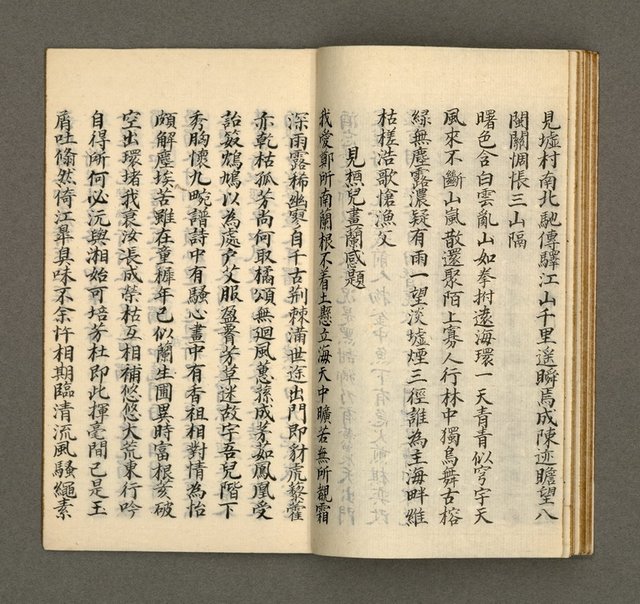 見墟村南北馳傳驛江山千里遙瞬焉成陳迹瞻望八
閩關惆悵三山隔
曙色含白雲亂山如拳拊遠海環一天青青似穹宇天
風來不斷山嵐散還聚陌上寡人行林中獨鳥舞古榕
綠無塵露濃疑有雨一望淡墟煙三徑誰為主海畔維
枯槎浩歌愴漁父
見樵兒畫蘭感題
我愛鄭所南蘭根不着土懸立海天中曠若無所覩霜
深雨露稀幽寥自千古荆棘滿世途出門即豺虎藜藿
亦乾枯孤芳尚何取橘頌無迴風蕙蓀成芳茹鳳凰受
詒笯鴆鳩以為處户艾服盈菁芳草迷故宇吾兒階下
秀胸懷九畹譜詩中有騷心畫中有香祖相對情為怡
頗解塵埃苦雖在童穉年已似蘭生圃異時富根荄破
空出環堵我衰汝長成榮枯互相補悠悠大荒東行吟
自得所何必沅與湘始可培芳杜即此揮毫間已是玉
屑吐翛然倚江皐具味不余忤相期臨清流風騷繩素